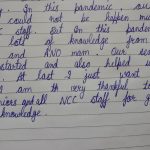 In this pandemic, our
could not be happen much
C staff. But in this pandemic
lots of knowledge from
and ANO mam. Our
started and also helped us
At last I just want
I am th very thankful to
niors and all NCC staff for g
knowledge.